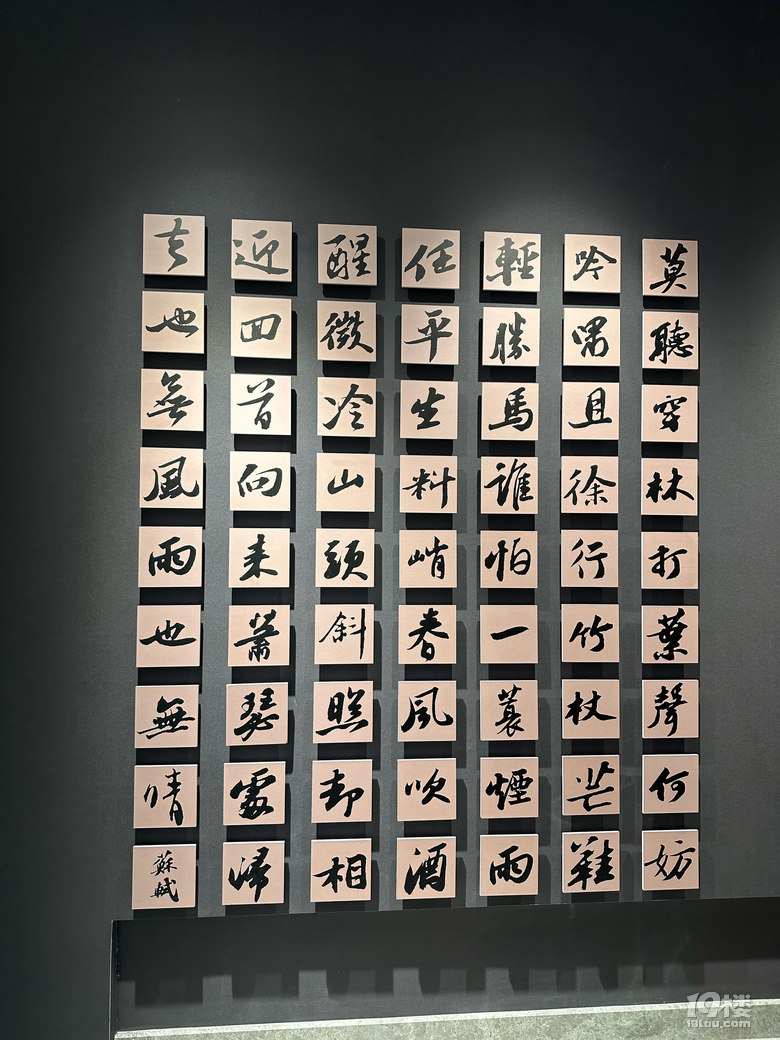 莫聽穿林打葉聲何妨
吟嘯且徐行竹杖芒鞋
輕勝馬誰怕一蓑煙雨
任平生料峭春風吹酒
醒微冷山頭斜照却相
迎回首向来蕭瑟處歸
去也無風雨也無晴
蘇軾
19楼
19lou.com